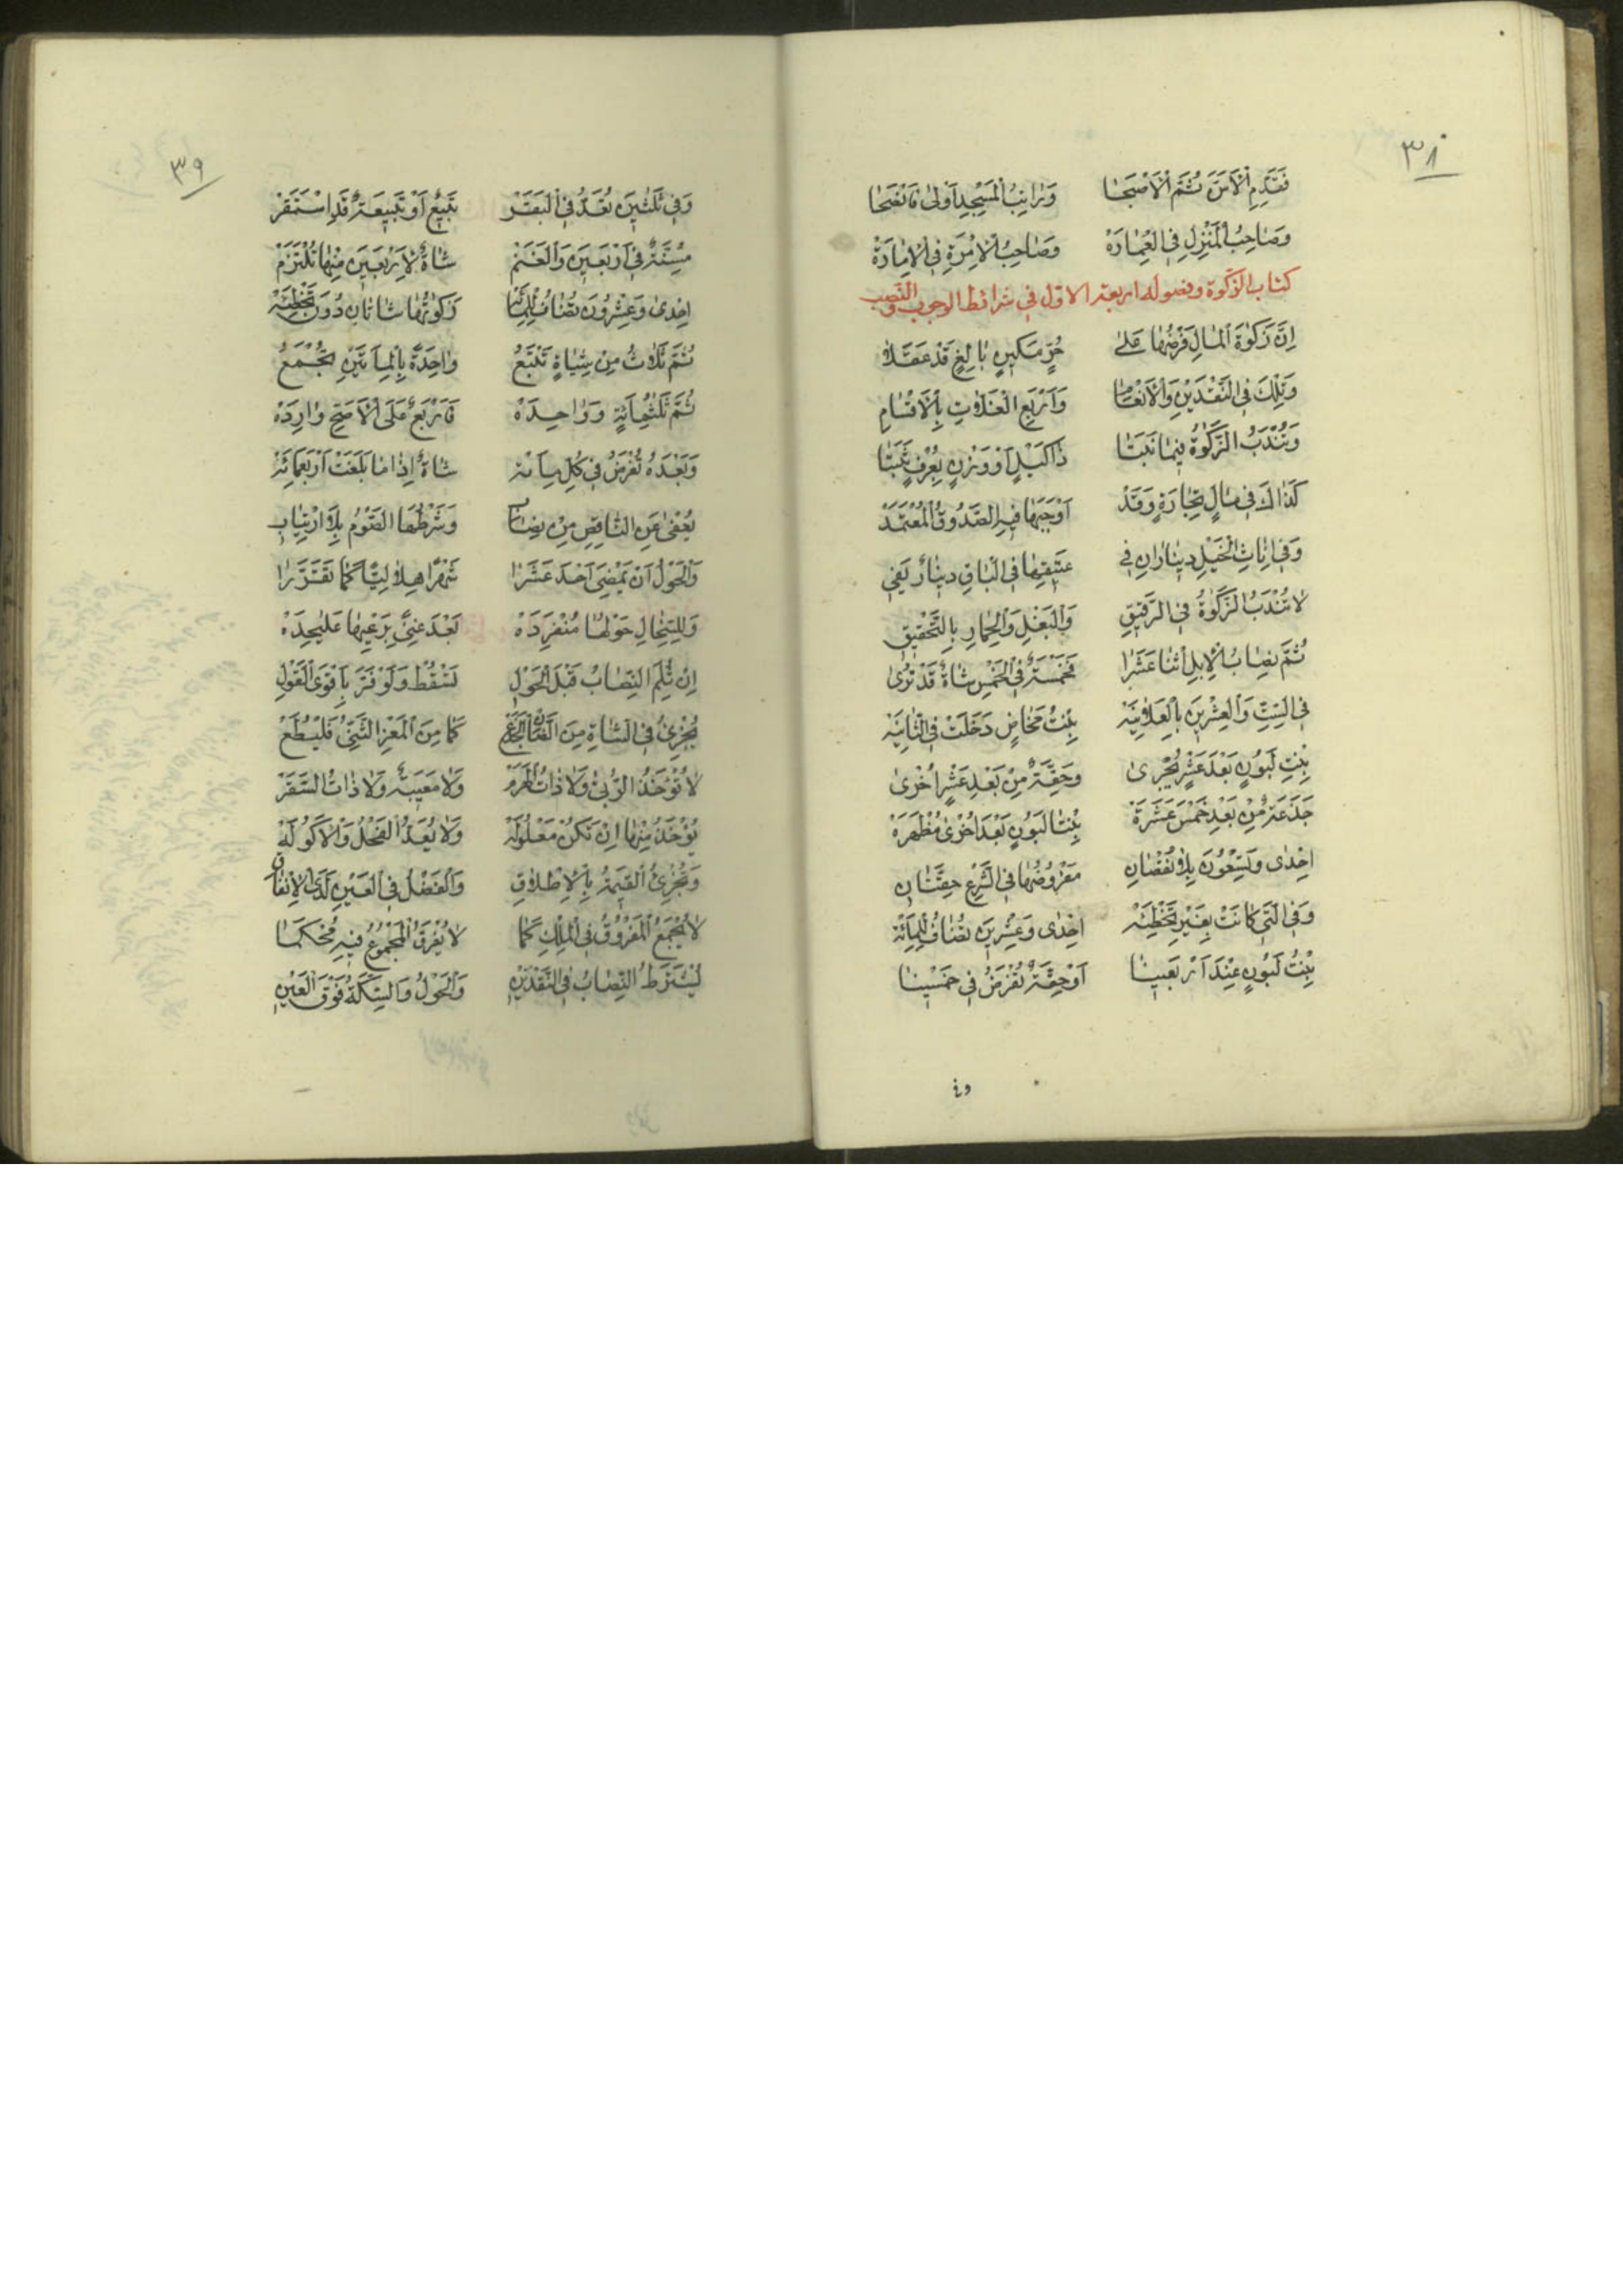 ٣٨
فَقَدِّمِ الْأَسَنَّ ثُمَّ الْأَصْبَحَا وَرَاتِبُ الْمَسْجِدِ أَوْلَىٰ
وَصَاحِبُ الْمَنْزِلِ فِي الْعِمَارَهْ وَصَاحِبُ الْإِمْرَةِ فِي الْإِمَارَهْ
كتاب الزكوة وفصوله اربعة الاول فى شرائط الوجوب والنصب
إِنَّ زَكٰوةَ الْمَالِ فَرْضُهَا عَلىٰ حُرٍّ مَكِينٍ بَالِغٍ قَدْ عَقَلَا
وَتِلْكَ فِي النَّقْدَيْنِ وَالْأَنْعَامِ وَأَرْبَعِ الْغَلَّاتِ بِالْأَقْسَامِ
وَتُنْدَبُ الزَّكٰوةُ فِيمَا نَبَتَا ذَا كَيْلٍ أَوْ وَزْنٍ بِعُرْفٍ ثَبَتَا
كَذَاكَ فِي مَالِ تِجَارَةٍ وَقَدْ أَوْجَبَهَا فِيهِ الصَّدُوقُ الْمُعْتَمَدْ
وَفِي إِنَاثِ الْخَيْلِ دِينَارَانِ فِي عَتِيقِهَا فِي الْبَاقِ دِينَارٌ يَفِي
لَا تُنْدَبُ الزَّكٰوةُ فِي الرَّقِيقِ وَالْبَغْلِ وَالْحِمَارِ بِالتَّحْقِيقِ
ثُمَّ نِصَابُ الْإِبِلِ اثْنَا عَشَرَا فَخَمْسَةٌ فِي الْخَمْسِ شَاةٌ قَدْ تُرىٰ
فِي السِّتِّ وَالْعِشْرِينَ بِالْعَلَانِيَهْ بِنْتُ مَخَاضٍ دَخَلَتْ فِي الثَّانِيَهْ
بِنْتِ لَبُونٍ بَعْدَ عَشْرٍ تُجْرىٰ وَحِقَّةٌ مِنْ بَعْدِ عَشْرٍ أُخْرىٰ
جَذَعَةٌ مِنْ بَعْدِ خَمْسَ عَشَرَةْ بِنْتَا لَبُونٍ بَعْدَ أُخْرىٰ مُظْهَرَهْ
إِحْدىٰ وَتِسْعُونَ بِلَا نُقْصَانِ مَفْرُوضُهَا فِي الشَّرْعِ حِقَّتَانِ
وَفِي الَّتِي كَانَتْ بِغَيْرِ تَخْطِئَهْ إِحْدىٰ وَعِشْرِينَ تُضَافُ لِلْمِائَهْ
بِنْتُ لَبُونٍ عِنْدَ أَرْبَعِينَا أَوْ حِقَّةٌ تُفْرَضُ فِي خَمْسِينَا
وفى
٣٩
وَفِي ثَلٰثِينَ تُعَدُّ فِي الْبَقَرْ تَبِيعٌ أَوْ تَبِيعَةٌ قَدِ اسْتَقَرْ
مُسِنَّةٌ فِي أَرْبَعِينَ وَالْغَنَمْ شَاةٌ لِأَرْبَعِينَ مِنْهَا تُلْتَزَمْ
إِحْدىٰ وَعِشْرُونَ تُضَافُ لِلْمِئَهْ زَكٰوتُهَا شَاتَانِ دُونَ تَخْطِئَهْ
ثُمَّ ثَلَاثٌ مِنْ شِيَاهٍ تَتْبَعُ وَاحِدَةً بِالْمِأَتَيْنِ تُجْمَعُ
ثُمَّ ثَلٰثُمِائَةٍ وَوَاحِدَهْ فَأَرْبَعٌ عَلَى الْأَصَحِّ وَارِدَهْ
وَبَعْدَهُ تُفْرَضُ فِي كُلِّ مِائَهْ شَاةٌ إِذَا مَا بَلَغَتْ أَرْبَعَمِائَهْ
يُعْفىٰ عَنِ النَّاقِصِ مِنْ نِصَابٍ وَشَرْطُهَا السَّوْمُ بِلَا ارْتِيَابِ
وَالْحَوْلُ أَنْ يَمْضِيَ أَحَدَ عَشَرَا شَهْرًا هِلَالِيًّا كَمَا تَقَرَّرَا
وَلِلسِّخَالِ حَوْلُهَا مُنْفَرِدَهْ بَعْدَ غِنىً بِرَعْيِهَا عَلىٰحِدَهْ
إِنْ ثُلِمَ النِّصَابُ قَبْلَ الْحَوْلِ تَسْقُطْ وَلَوْ فَرَّ بِأَقْوَى الْقَوْلِ
يُجْزِئُ فِي الشَّاةِ مِنَ الضَّأْنِ الْجَذَعْ كَمَا مِنَ الْمَعْزِ الثَّنِيُّ فَلْيُطَعْ
لَا تُؤْخَذُ الرُّبىٰ وَلَا ذَاتُ الْهَرَمْ وَلَا مَعِيبَةٌ وَلَا ذَاتُ السَّقَمْ
يُؤْخَذُ مِنْهَا إِنْ تَكُنْ مَعْلُولَهْ وَلَا يُعَدُّ الْفَحْلُ وَالْأَكُولَهْ
وَتُجْزِئُ الْقِيمَةُ بِالْإِطْلَاقِ وَالْفَضْلُ فِي الْعَيْنِ لَدَى الْإِنْفَاقِ
لَا يُجْمَعُ الْمَفْرُوقُ فِي الْمِلْكِ كَمَا لَا يُفْرَقُ الْمَجْمُوعُ فِيهِ مُحْكَمَا
يُشْتَرَطُ النِّصَابُ فِي النَّقْدَيْنِ وَالْحَوْلُ وَالسِّكَّةُ فَوْقَ الْعَيْنِ